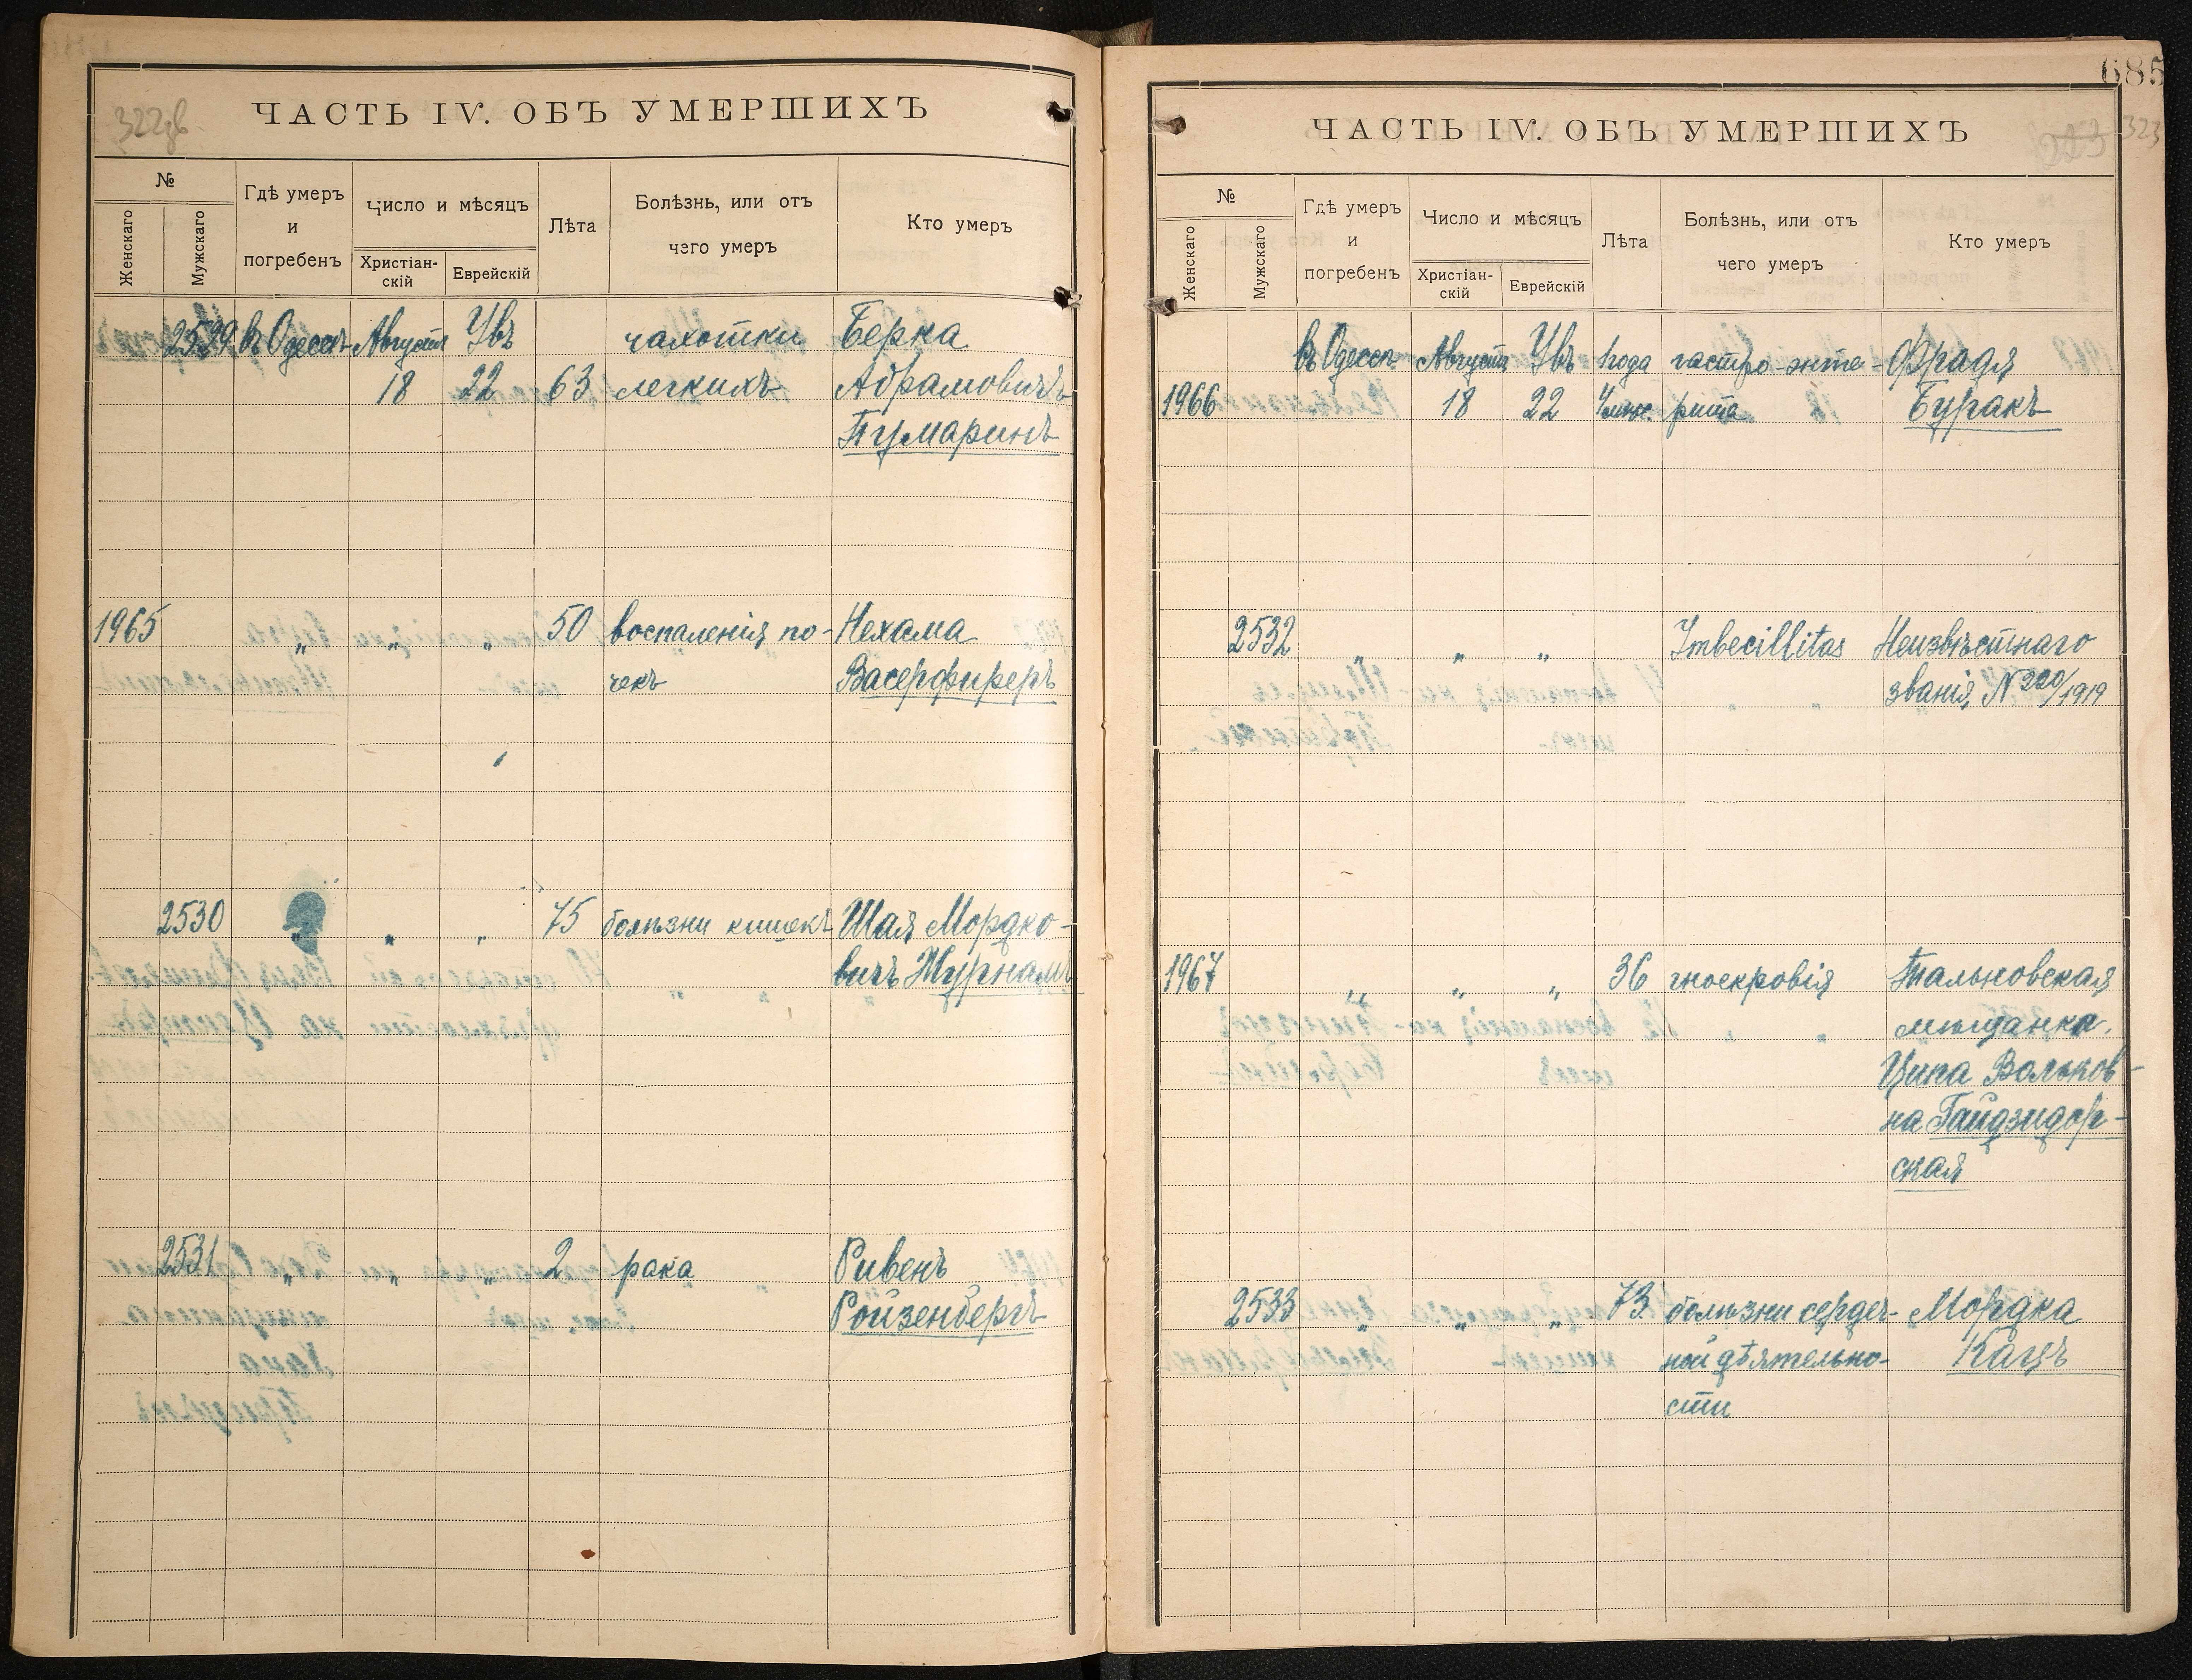 ЧАСТЬ IV. ОБЪ УМЕРШИХЪ
№
Женскаго
Мужскаго
Гдѣ умеръ
и
погребенъ
Число и мѣсяцъ
Христіан-
скій
Еврейскій
Лѣта
Болѣзнь, или отъ
чего умеръ
Кто умеръ
2529 въ Одессѣ Августа Увъ чахотки Берка
18 22 63 легкихъ Абрамовичъ
Тумаринъ
1965 „ „ „ 50 воспаленія по- Нехама
чекъ Васерфиреръ
2530 „ „ „ 75 болѣзни кишекъ Шая Мордко-
вичъ Журналъ
2531 „ „ „ 2 рака Ривенъ
Ройзенбергъ
685
323
ЧАСТЬ IV. ОБЪ УМЕРШИХЪ
№
Женскаго
Мужскаго
Гдѣ умеръ
и
погребенъ
Число и мѣсяцъ
Христіан-
скій
Еврейскій
Лѣта
Болѣзнь, или отъ
чего умеръ
Кто умеръ
въ Одессѣ Августа Увъ 1 года гастро-энте- Фрадя
1966 18 22 4 мѣс. рита Бугакъ
2532 „ „ „ Imbecillitas Неизвѣстнаго
званія, N 220/1919
1967 „ „ „ 36 гноекровія Тальновская
мѣщанка
Ципа Вольков-
на Гайдзидор-
ская
2533 „ „ „ 73 болѣзни сердеч- Мордка
ной дѣятельно- Кацъ
сти